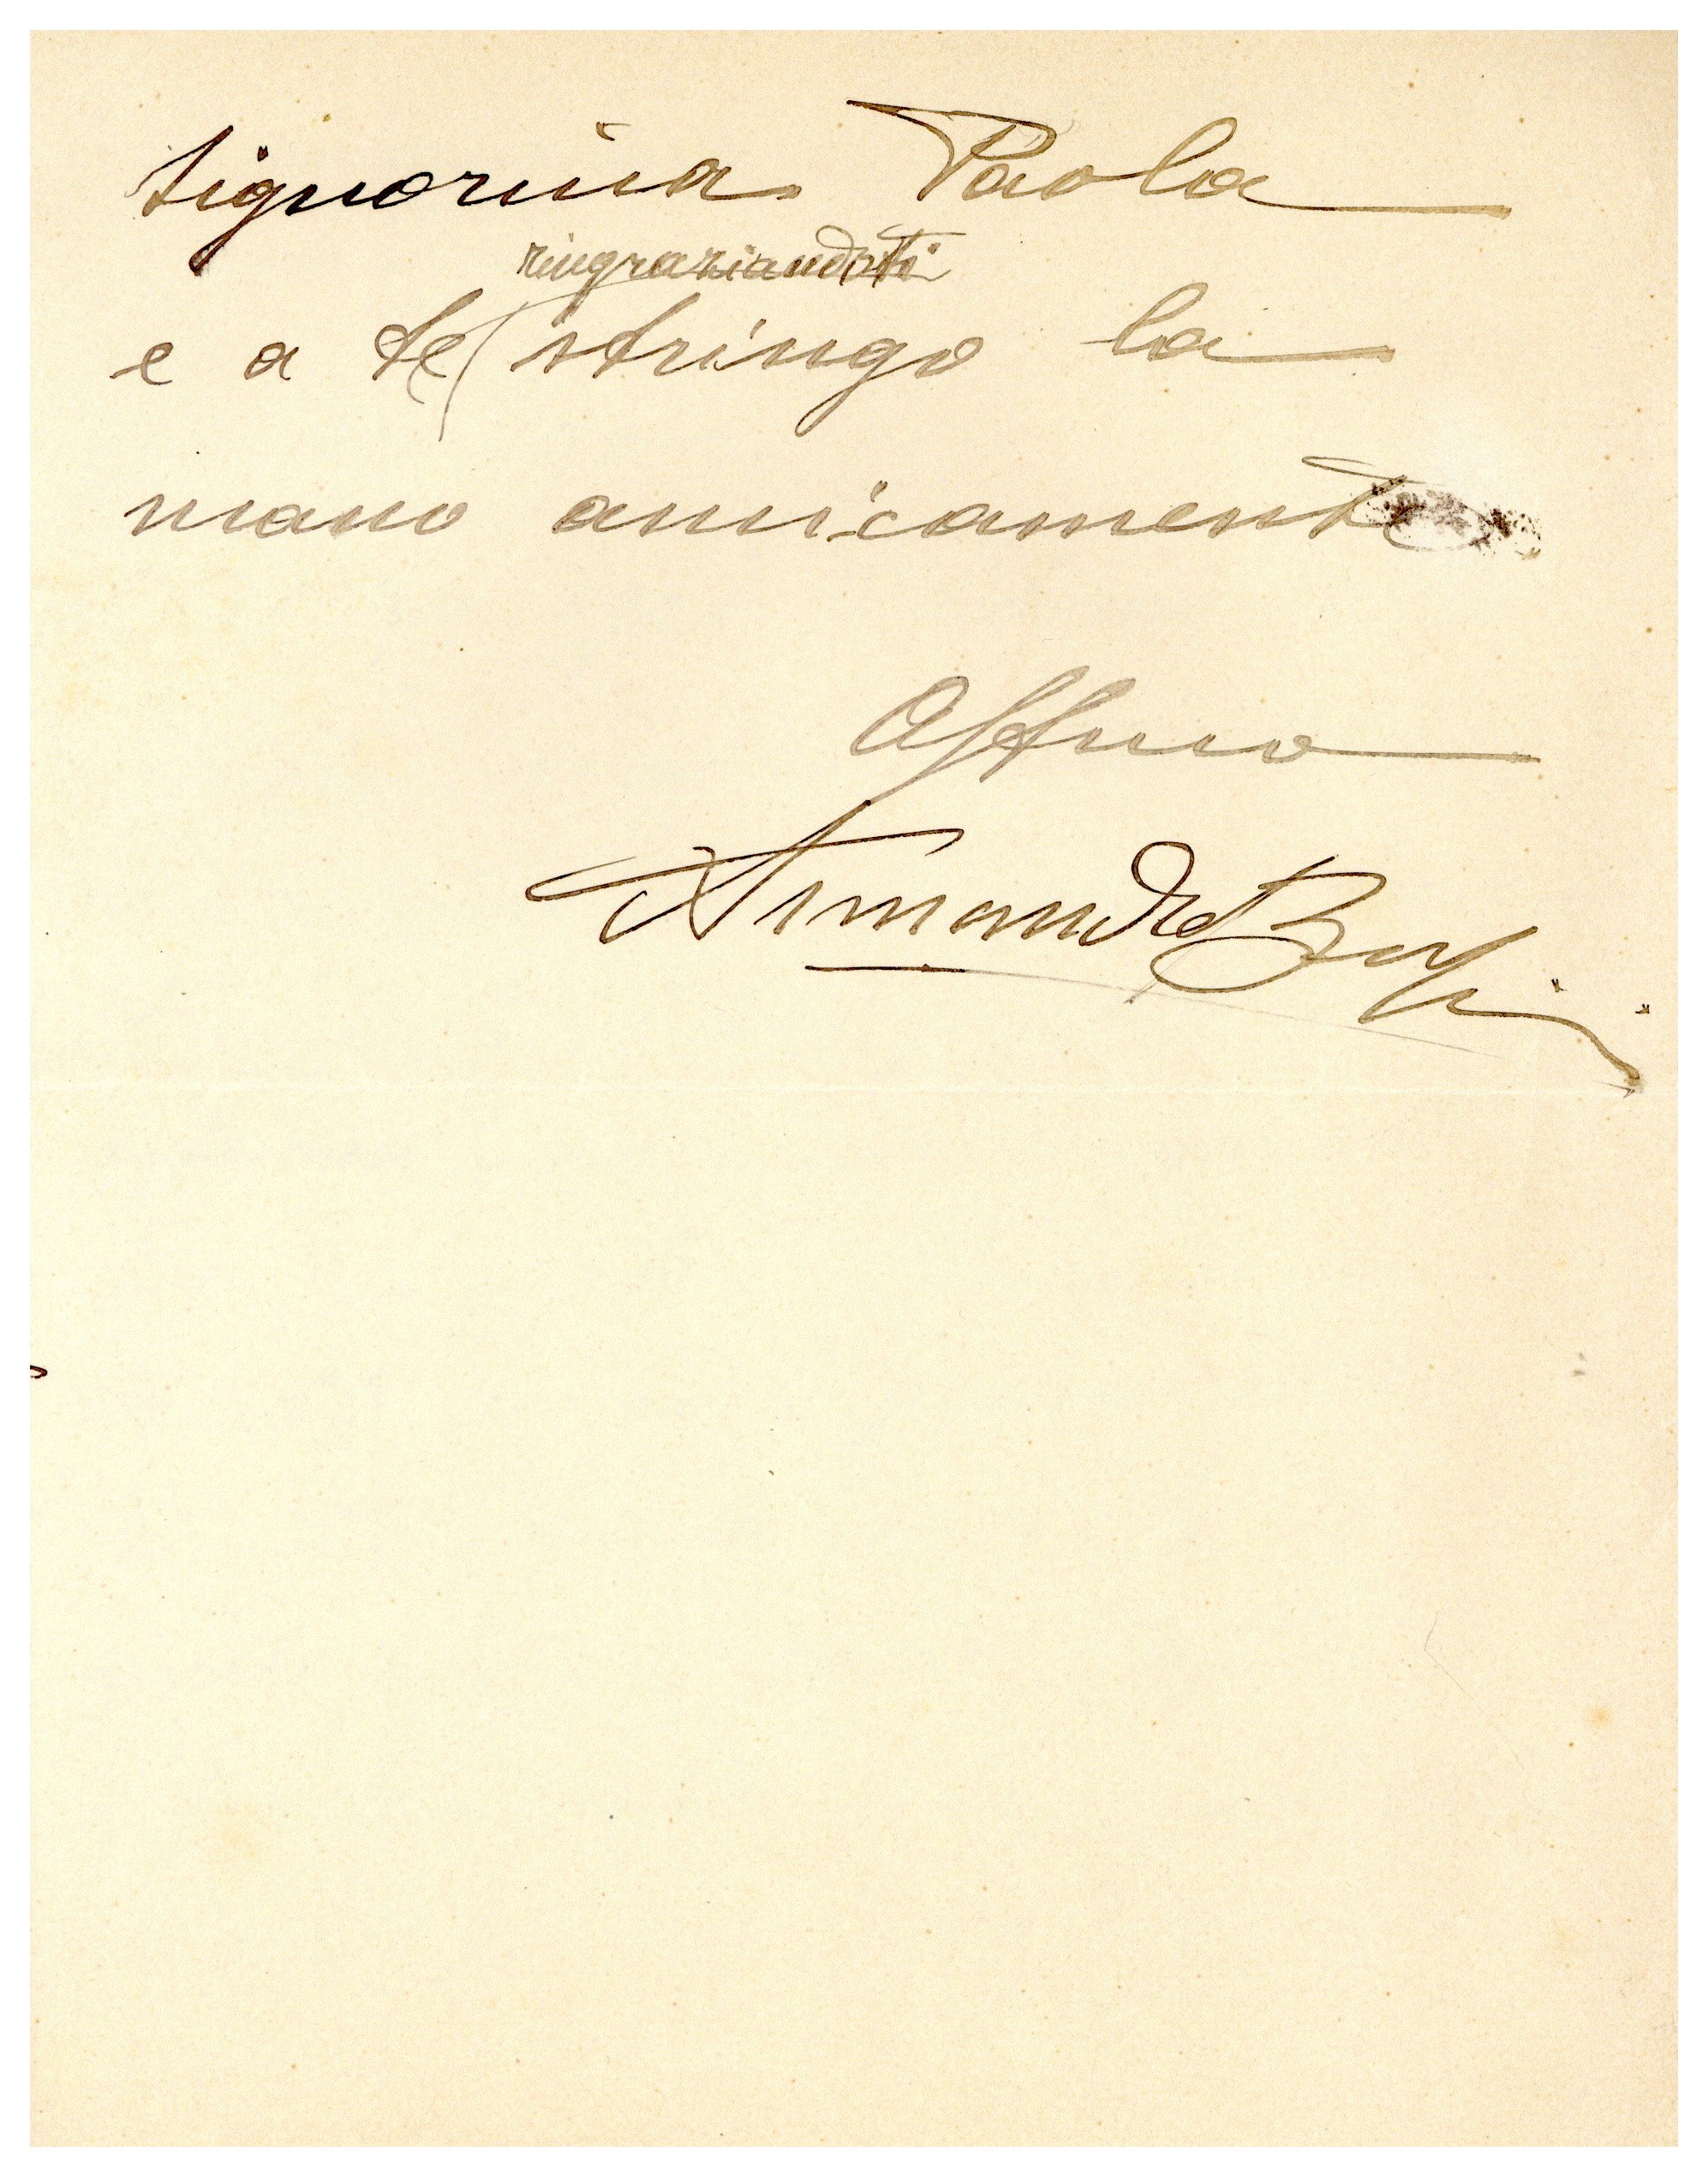 signorina Paola
ringraziandoti
e a te stringo la
mano amicamente
Affmo
Armando